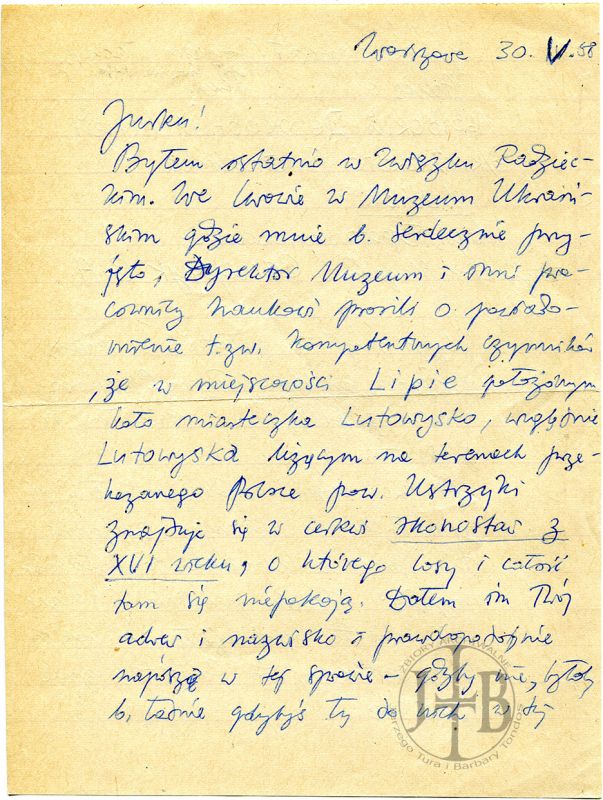 Warszawa 30.V.58
Jurku!
Byłem ostatnio w Związku Radziec-
kim. We Lwowie w Muzeum Ukraiń-
skim gdzie mnie b. serdecznie przy-
jęto, Dyrektor Muzeum i inni pra-
cownicy naukowi prosili o powiado-
mienie t.zw. kompetentnych czynników
, że w miejscowości Lipie położonym
koło miasteczka Lutowysko, względnie
Lutowyska leżącym na terenach prze-
kazanego Polsce pow. Ustrzyki
znajduje się w cerkwi ikonostas z
XVI wieku, o którego losy i całość
tam się niepokoją. Dałem im Twój
adres i nazwisko i prawdopodobnie
napiszą w tej sprawie - gdyby nie, byłoby
b. ładnie gdybyś Ty do nich w tej
ZBIORY ARCHIWALNE
JTB
Jerzego Tura i Barbary Tondos